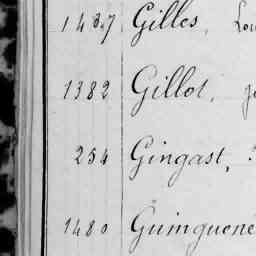 1437 Gilles, Lou
1382 Gillot, Jo
254 Gingast,
1480 Guinguené